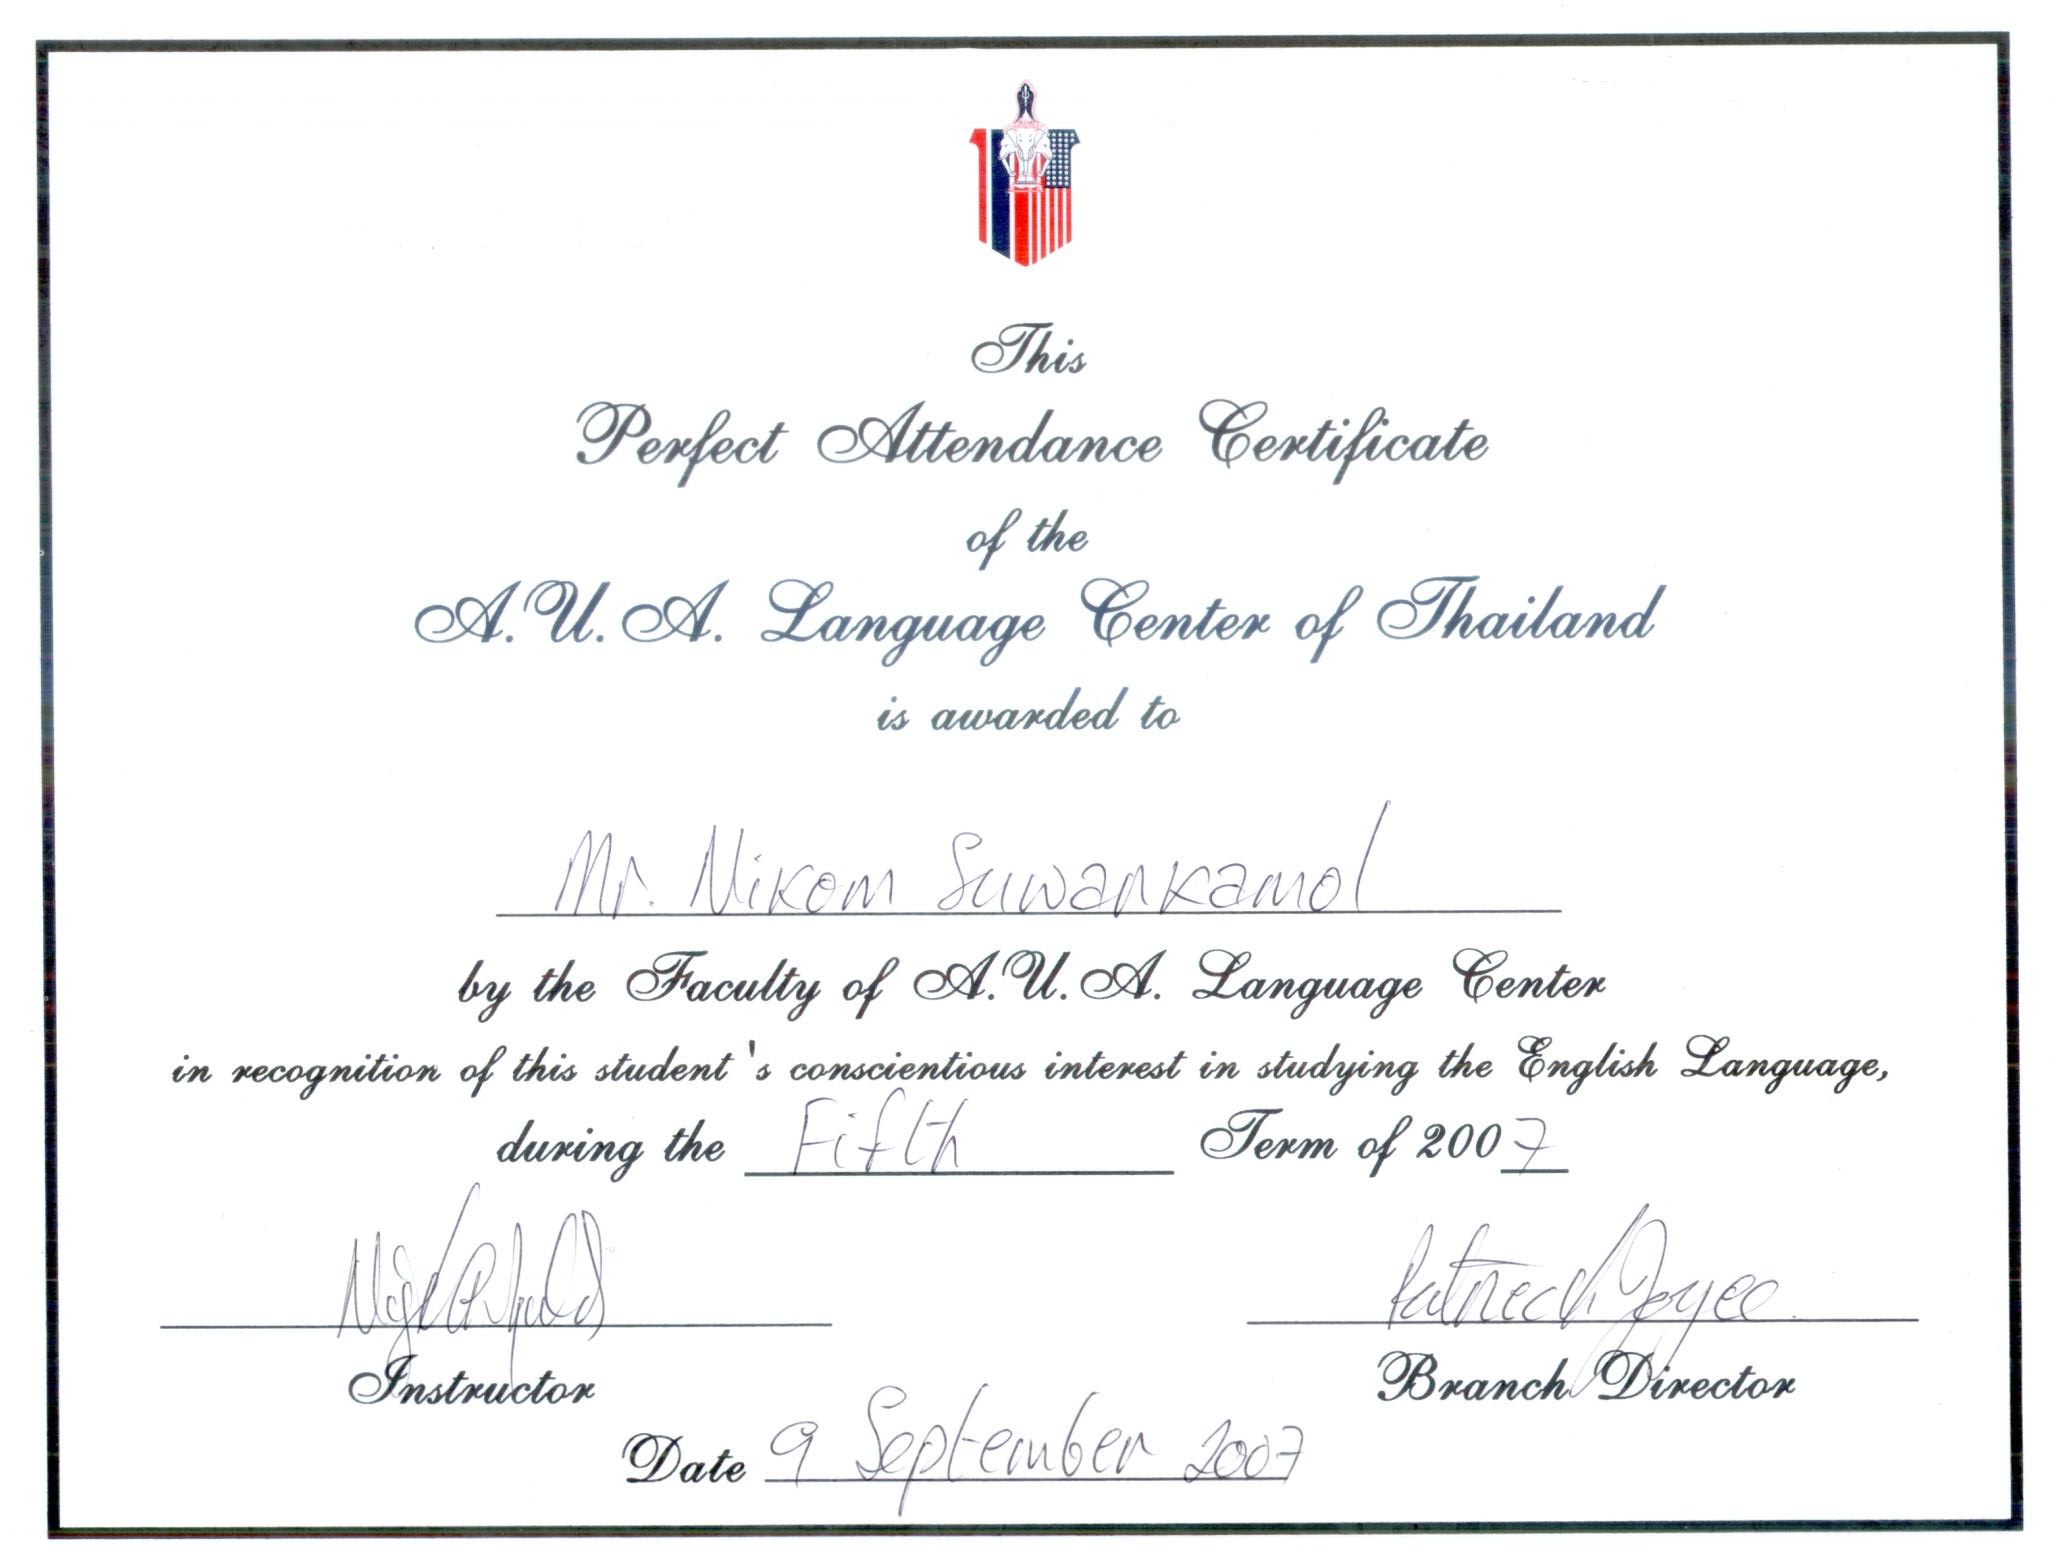 This
Perfect Attendance Certificate
of the
A.U.A. Language Center of Thailand
is awarded to
Mr. Nikom Suwankamol
by the Faculty of A.U.A. Language Center
in recognition of this student's conscientious interest in studying the English Language,
during the Fifth Term of 2007
Patrick Joyce
Instructor Branch Director
Date 9 September 2007